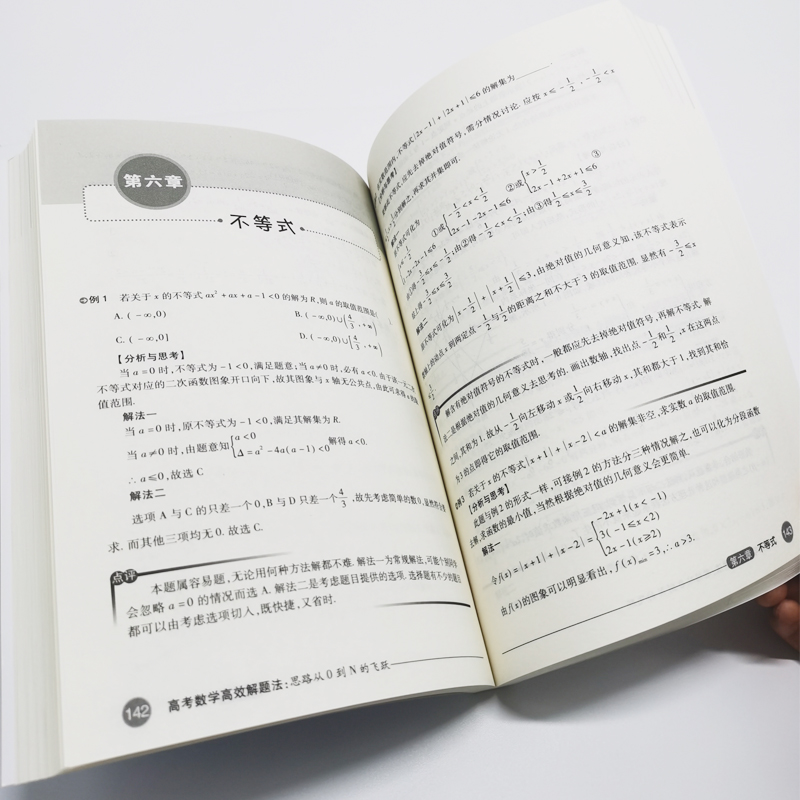 第六章
不等式
例1 若关于x的不等式ax²+ax+a-1<0的解为R,则a的取值范围是(
A. (-∞,0) B. (-∞,0)∪[4/3,+∞)
C. (-∞,0] D. (-∞,0]∪[4/3,+∞)
【分析与思考】
当a=0时,不等式为-1<0,满足题意;当a≠0时,必有a<0,由于该一元二次
不等式对应的二次函数图象开口向下,故其图象与x轴无公共点,由此可求得a的取
值范围.
解法一
当a=0时,原不等式为-1<0,满足其解集为R.
当a≠0时,由题意知{a<0
Δ=a²-4a(a-1)<0 解得a<0.
∴a≤0,故选C
解法二
选项A与C的只差一个0,B与D只差一个4/3,故先考虑简单的数0,显然符合要
求.而其他三项均无0.故选C.
点评
本题属容易题,无论用何种方法解都不难.解法一为常规解法,可能个别同学
会忽略a=0的情况而选A.解法二是考虑题目提供的选项.选择题有不少的题目
都可以由考虑选项切入,既快捷,又省时.
142 高考数学高效解题法:思路从0到N的飞跃
范围内,不等式|2x-1|+|2x+1|≤6的解集为
不等式,应先去掉绝对值符号,需分情况讨论.应按x≤-1/2,-1/2<x
分别解之,再求其并集即可.
解法一
不等式可化为
①或{-1/2<x<1/2 ②或{x>1/2 ③
2x-1-2x-1≤6 2x-1+2x+1≤6
;由②得-1/2<x<1/2;由③得1/2≤x≤3/2
解法二
不等式可化为|x-1/2|+|x+1/2|≤3,由绝对值的几何意义知,该不等式表示
数轴上的点x到两定点-1/2与1/2的距离之和不大于3的取值范围.显然有-3/2≤x
解含有绝对值符号的不等式时,一般都应先去掉绝对值符号,再解不等式.解
法二是根据绝对值的几何意义去思考的.画出数轴,找出点-1/2和1/2,x在这两点
之间,其和为1.故从-1/2向左移动x或1/2向右移动x,其和都大于1,找到其和恰
为3的点即得它的取值范围.
例3 若关于x的不等式|x+1|+|x-2|<a的解集非空,求实数a的取值范围.
【分析与思考】
此题与例2的形式一样,可按例2的方法分三种情况解之,也可以化为分段函数
去解,求函数的最小值,当然根据绝对值的几何意义会更简单.
解法一
令f(x)=|x+1|+|x-2|={-2x+1(x<-1)
3(-1≤x<2)
2x-1(x≥2)
由f(x)的图象可以明显看出,f(x)min=3,∴a>3.
第六章 不等式 143